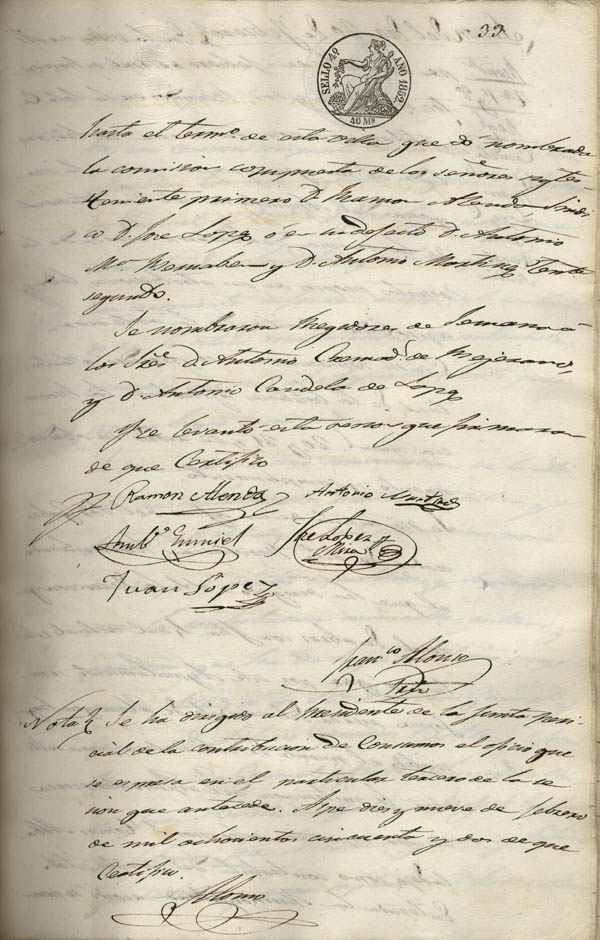 33
SELLO 4º AÑO 1852
40 Ms
hasta el termº de esta villa que dó nombrada
la comision compuesta de los señores
teniente primero D. Ramon Alenda Sindi
co D. Jose Lopez o en su defecto D. Antonio
Mª Bernabeu y D. Antonio Martinez Tente
segundo.
Se nombraron Regidores de Semana a
los Sres D. Antonio de
y D. Antonio Candela de Lopez
Y se levantó esta sesion que firmaron
de que Certifico
Ramon Alenda Antonio Martinez
Jose Lopez y
Mira
Juan Lopez
Franco Alonso
Nota Se ha dirigido al Presidente de la Junta peri
cial de la contribucion de Consumos el oficio que
se espresa en el particular tercero de la se
sion que antecede. Aspe diez y nueve de febrero
de mil ochocientos cincuenta y dos de que
Certifico.
Alonso